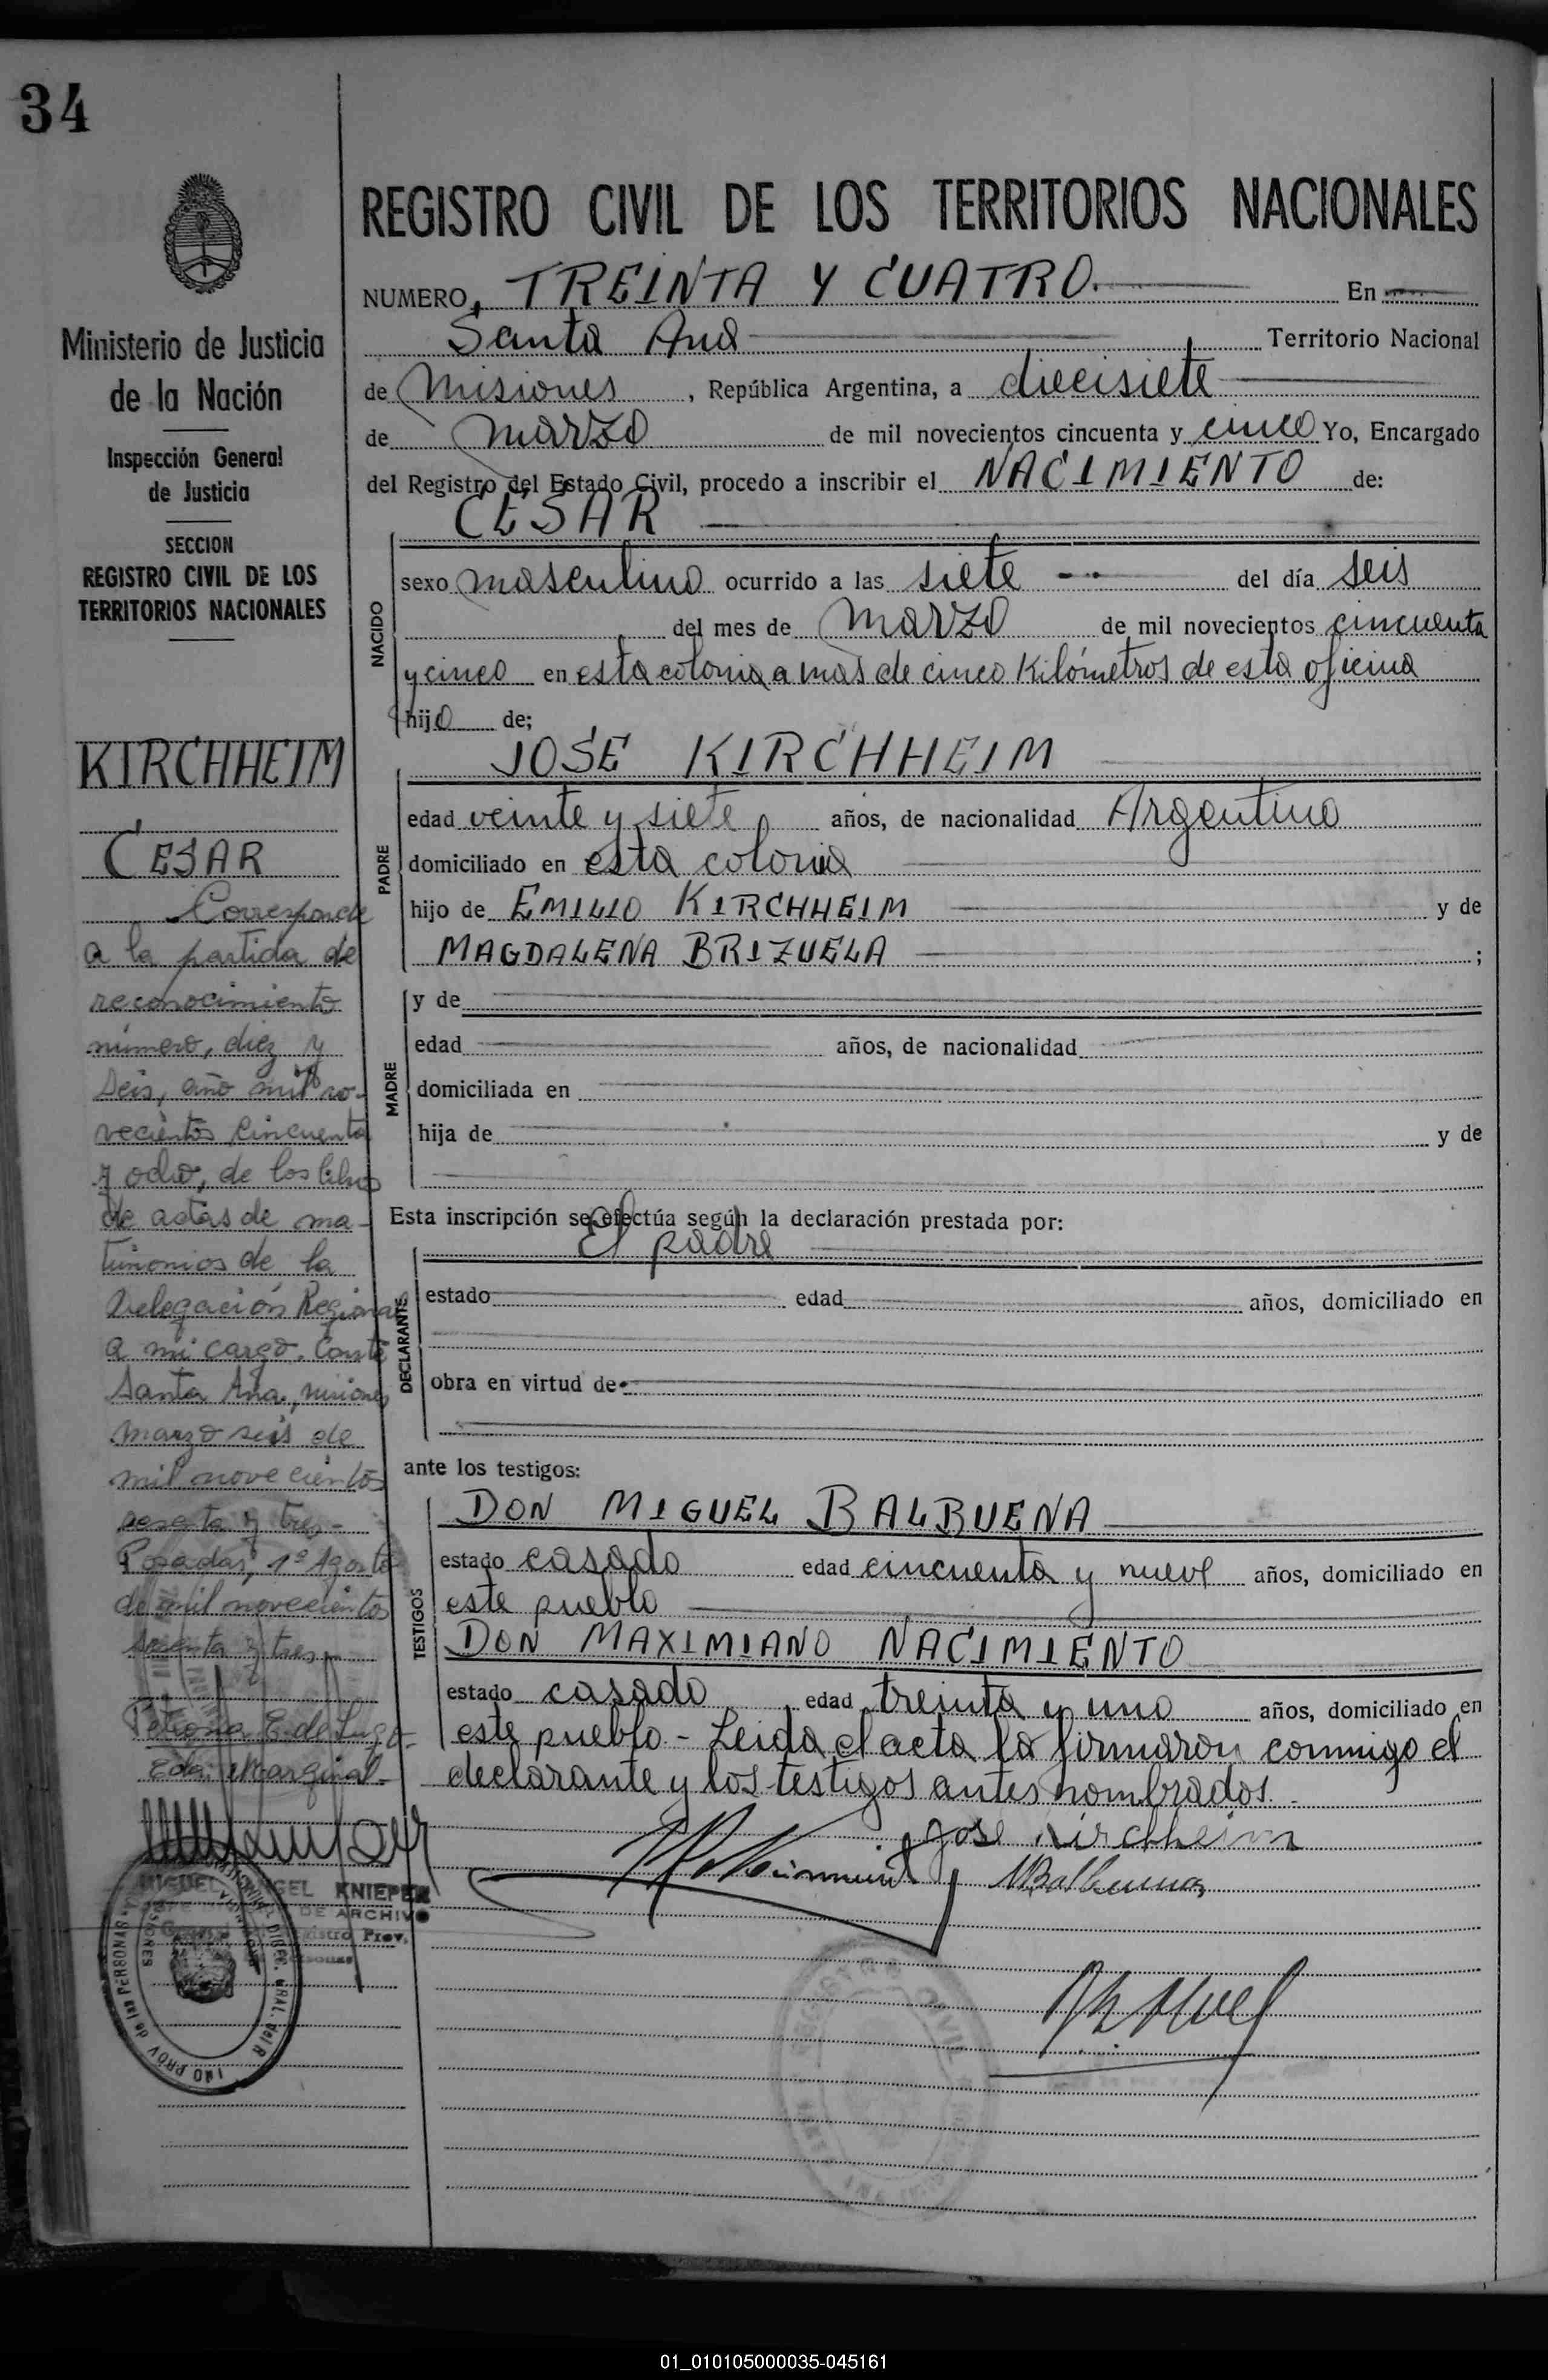 34
REGISTRO CIVIL DE LOS TERRITORIOS NACIONALES
NUMERO, TREINTA Y CUATRO. En
Santa Ana Territorio Nacional
de Misiones, República Argentina, a diecisiete
de marzo de mil novecientos cincuenta y cinco Yo, Encargado
del Registro del Estado Civil, procedo a inscribir el NACIMIENTO de:
CESAR
NACIDO
sexo masculino ocurrido a las siete del día seis
del mes de marzo de mil novecientos cincuenta
y cinco en esta colonia a mas de cinco Kilómetros de esta oficina
hijo de;
JOSE KIRCHHEIM
PADRE
edad veinte y siete años, de nacionalidad Argentino
domiciliado en esta colonia
hijo de EMILIO KIRCHHEIM y de
MAGDALENA BRIZUELA ;
MADRE
y de
edad años, de nacionalidad
domiciliada en
hija de y de
Esta inscripción se efectúa según la declaración prestada por:
el padre
DECLARANTE
estado edad años, domiciliado en
obra en virtud de
ante los testigos:
TESTIGOS
DON MIGUEL BALBUENA
estado casado edad cincuenta y nueve años, domiciliado en
este pueblo
DON MAXIMIANO NACIMIENTO
estado casado edad treinta y uno años, domiciliado en
este pueblo - Leida el acta la firmaron conmigo el
declarante y los testigos antes nombrados.
Jose Kirchheim
MBalbuena
Ministerio de Justicia
de la Nación
Inspección General
de Justicia
SECCION
REGISTRO CIVIL DE LOS
TERRITORIOS NACIONALES
KIRCHHEIM
CESAR
Corresponde
a la partida de
reconocimiento
número, diez y
seis, año mil no-
vecientos cincuenta
y ocho, de los libros
de actas de ma-
trimonios de la
Delegación Regional
a mi cargo. Conste
Santa Ana, misiones
marzo seis de
mil novecientos
sesenta y tres.-
Posadas, 1º Agosto
de mil novecientos
sesenta y tres.-
Petrona E. de Lugo-
Eda. Marginal-
MIGUEL ANGEL KNIEPER
JEFE DE ARCHIVO
Registro Prov.
de las PERSONAS
01_010105000035-045161